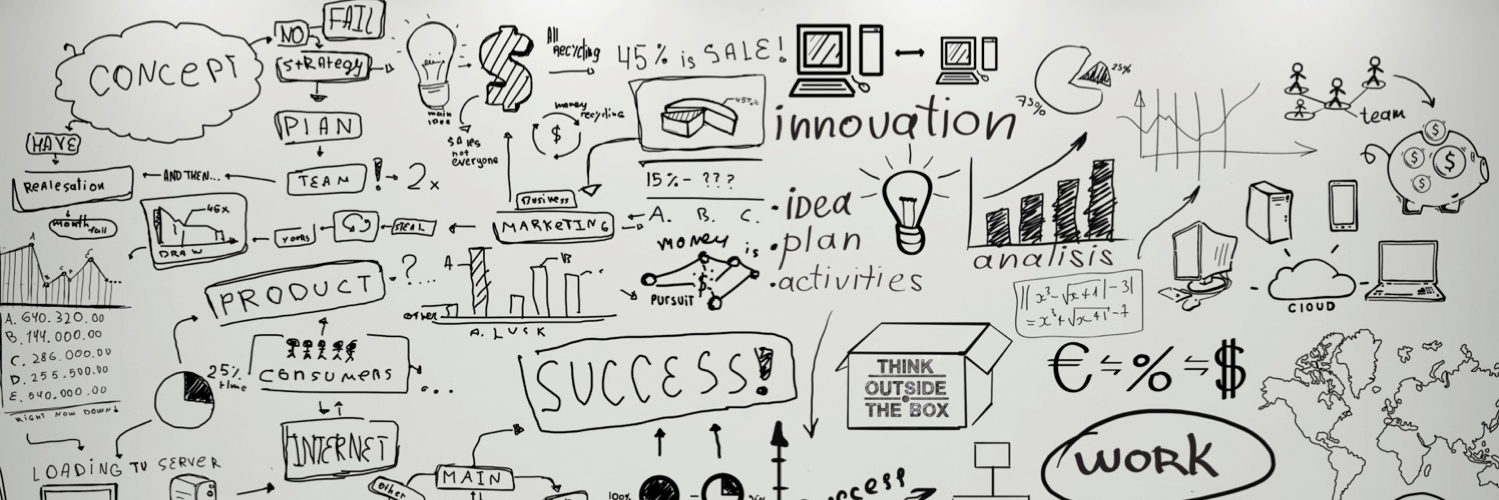 CONCEPT
NO
FAIL
StRAtegy
PlAN
TEAM ! 2x
HAVE
ReAlesation
AND THEN...
month
fall
45x
DRAW
YOURS
main
idea
$Ales
not
everyone
All
Recycling
money
recycling
$
45% is SALE!
45%
15% - ???
A. B. C.
Business
MARKETING
money is
$
PURSUIT
innovation
• idea
• plan
• activities
75%
25%
analisis
team
$ $ $ $
CLOUD
A
B
C
A. 640.320.00
B. 144.000.00
C. 286.000.00
D. 255.500.00
E. 540.000.00
RIGHT NOW DOWN!
PRODUCT - ?....
25%
time
CONSUMERS
...
INTERNET
LOADING TO SERVER
A
B
C
other
A. LUCK
SUCCESS!
THINK
OUTSIDE
THE BOX
€ ⇋ % ⇋ $
WORK
MAIN
other
100%
success